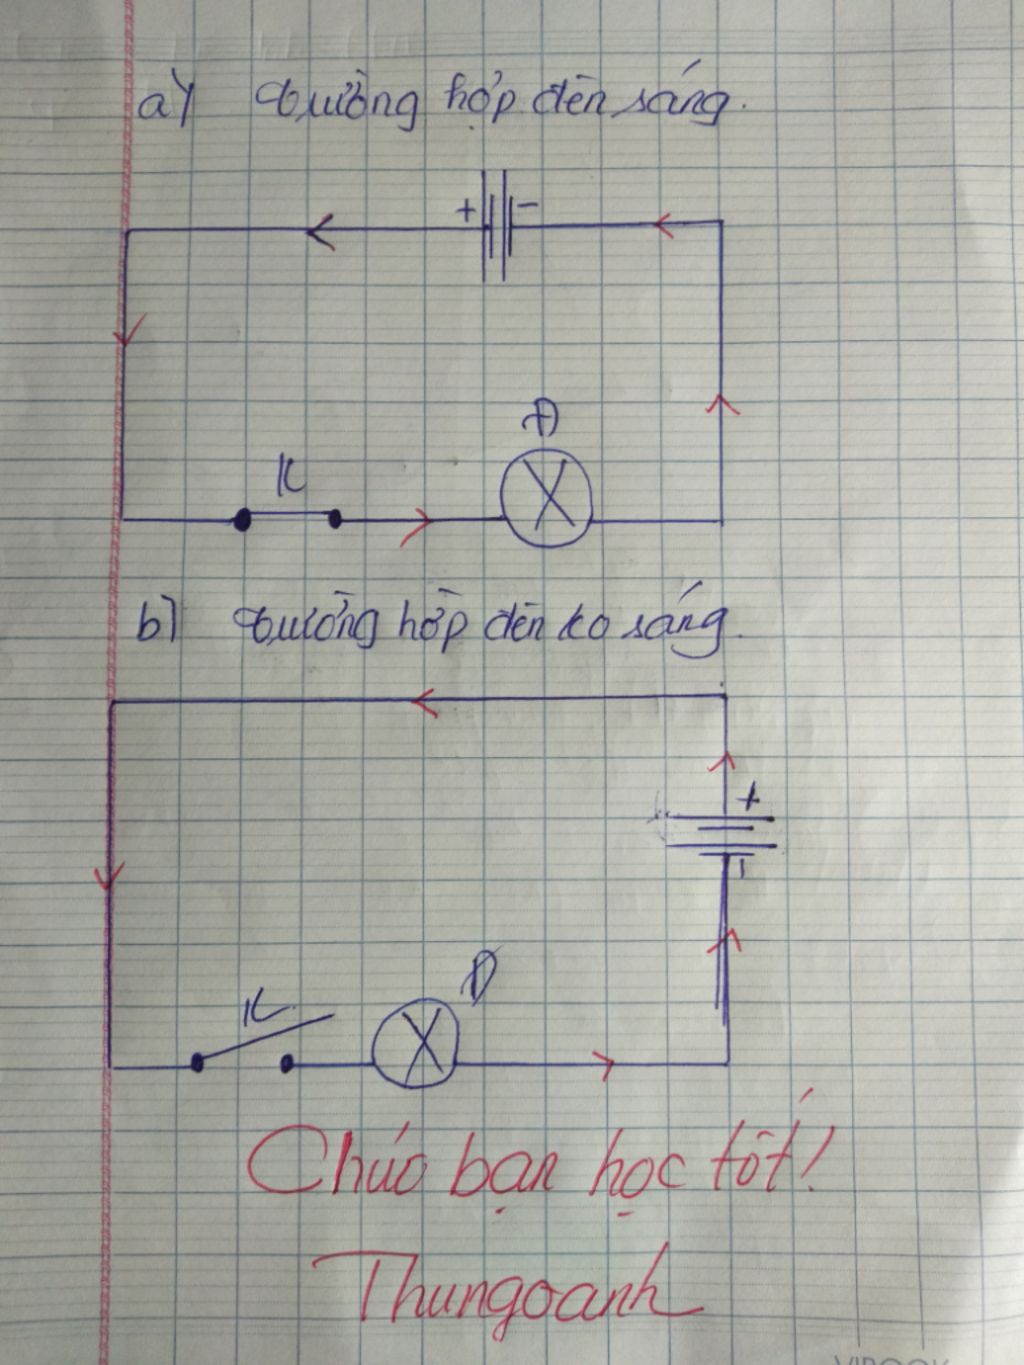 a) trường hợp đèn sáng.
+ -
Đ
K
b) trường hợp đèn ko sáng.
+
-
Đ
K
Chúc bạn học tốt!
Thungoanh